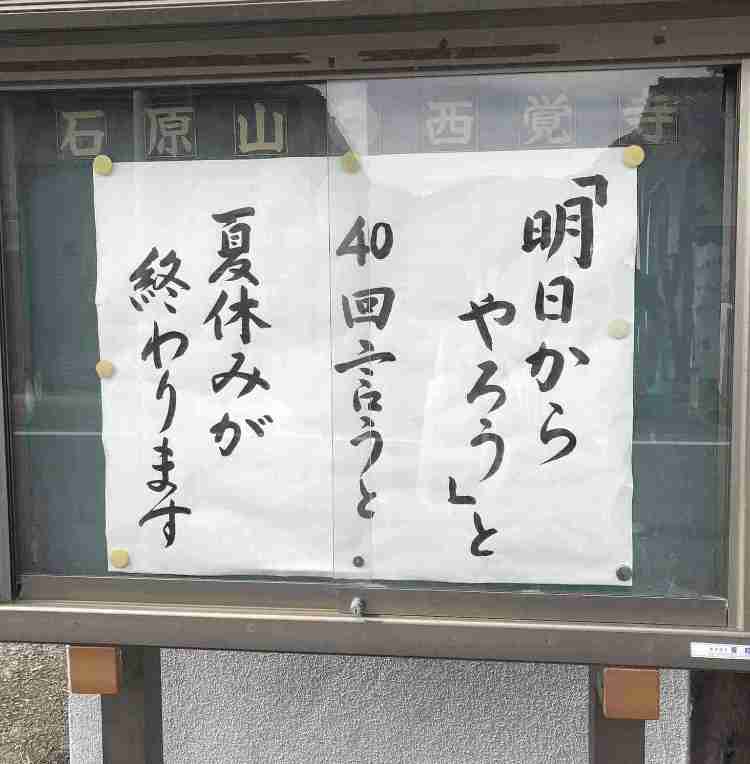 石原山 西覚寺
「明日から
やろう」と
40回言うと
夏休みが
終わります